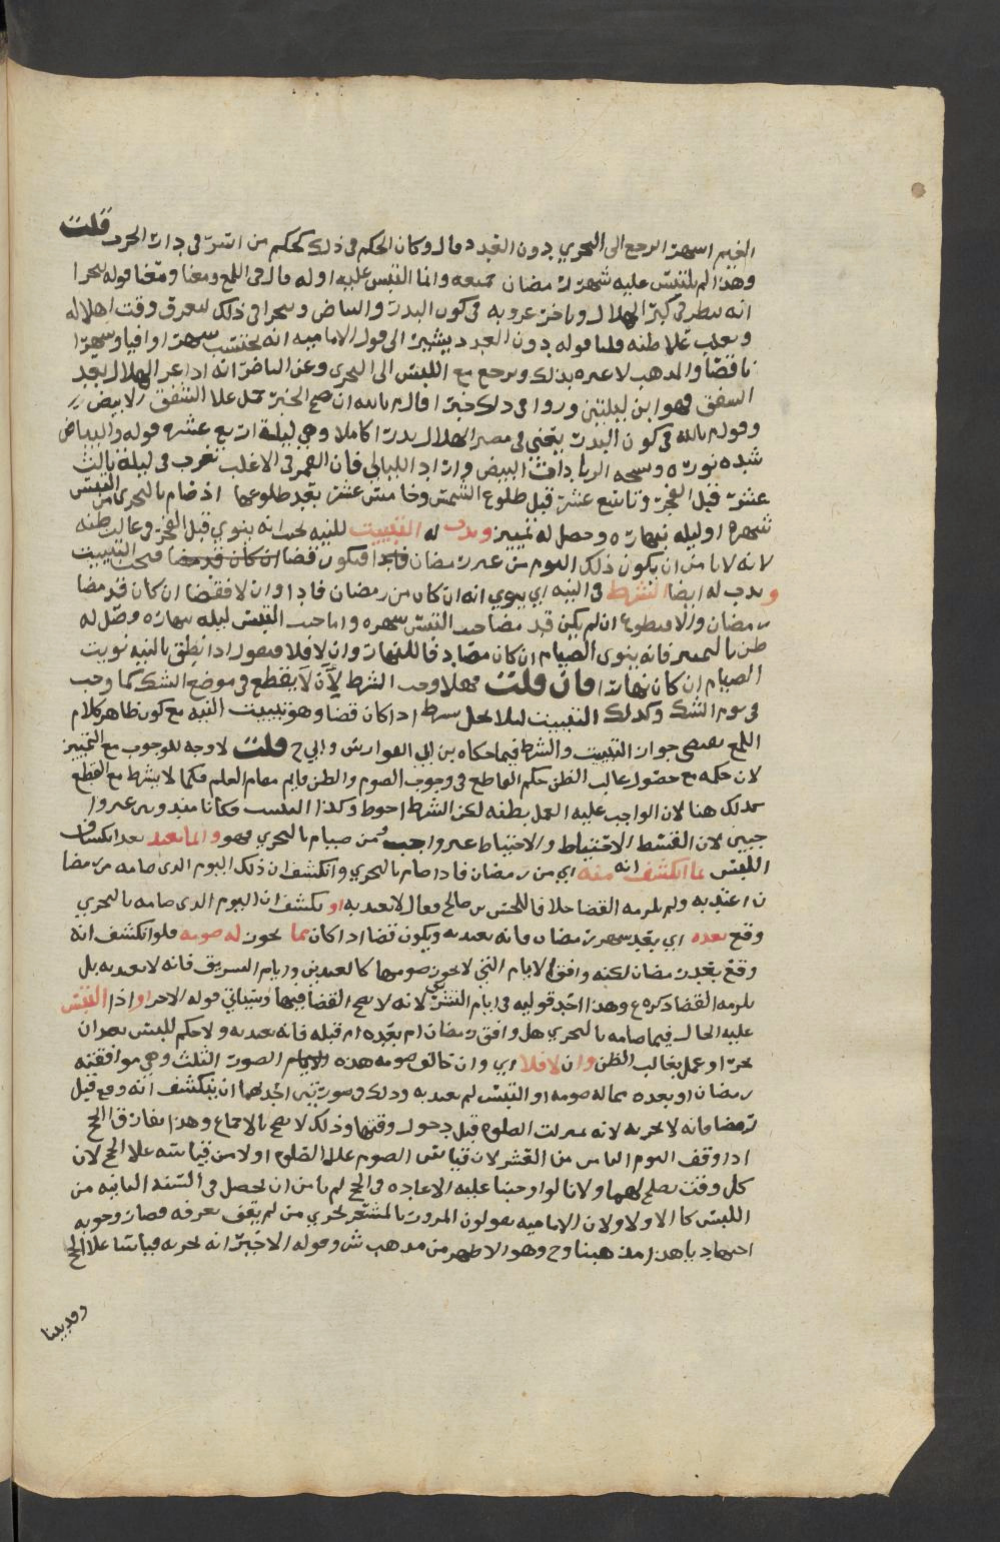 الغيم اشهرا لرجع الى التحري دون العدد قال وكان الحكم في ذلك كحكم من اسر في دار الحرب قلت
وهذا لم يلتبس عليه شهر رمضان جميعه وانما التبس عليه اوله قال في اللمع ومعنا قوله تحرا
انه ينظر في كبر الهلال وتاخر غروبه في كون البدر والبياض ويتحرا في ذلك ليعرف وقت اهلاله
ويغلب على ظنه قلنا قوله دون العدد يشير الى قول الاماميه انه يحتسب شهرا وافيا وشهرا
ناقصا والمذهب لا عبره بذلك ويرجع مع اللبس الى التحري وعن الناصر انه اذا غرب الهلال بعد
الشفق فهو ابن ليلتين وروا في ذلك خبرا قال بالله ان صح الخبر حمل علا الشفق الابيض
وقول بالله في كون البدر يعني في مصير الهلال بدرا كاملا وهي ليلة اربع عشره قوله والبياض
شده نوره اراد الليالي البيض فان القمر في الاغلب يغرب في ليلة ثالث
عشر قبل الفجر ورابع عشر قبل طلوع الشمس وخامس عشر بعد طلوعها اذ صام بالتحري من التبس
شهره او ليله نهاره وحصل له تمييز وندب له التبييت للنيه بحيث انه ينوي قبل الفجر وغالب ظنه
لانه لا يامن ان يكون ذلك اليوم من غير رمضان فيكون قضا ان كان قد مضا فيجب التبييت
وندب له ايضا الشرط في النيه اي ينوي انه ان كان من رمضان فادا وان لا فقضا ان كان قد مضا
رمضان والا فتطوع ان لم يكن قد مضا حيث التبس شهره واما حيث التبس ليله نهاره وحصل له
ظن بالتمييز فانه ينوى الصيام ان كان مصادفا للنهار وان لا فلا فيقول اذا نطق بالنيه نويت
الصيام ان كان نهارا فان قلت فهلا وجب الشرط لان لا يقطع في موضع الشك كما وجب
في يوم الشك وكذلك التبييت ليلا يخل بشرط اذا كان قضا وهو تبييت النيه مع كون ظاهر كلام
اللمع يقتضي جواز التبييت والشرط فيما حكاه بن ابي الفوارس وابي ح قلت لا وجه للوجوب مع التمييز
لان حكمه مع حصول غالب الظن حكم القاطع في وجوب الصوم والظن قايم مقام العلم فكما لا يشرط مع القطع
كذلك هنا لان الواجب عليه العمل بظنه لكن الشرط احوط وكذا التبييت فكانا مندوبين غير وا
جبين لان القسط الاحتياط والاحتياط غير واجب فمن صيام بالتحري فهو وانما يعتد بعد انكشاف
اللبس بما انكشف انه منه اي من رمضان فاذا صام بالتحري وانكشف ان ذلك اليوم الذي صامه من رمضا
ن اعتد به ولم يلزمه القضا خلافا للحسن بن صالح فقال لا يعتد به او يكشف ان اليوم الذي صامه بالتحري
وقع بعده اي بعد شهر رمضان فانه يعتد به ويكون قضا اذا كان مما يجوز له صومه فلو انكشف انه
وقع بعد رمضان لكنه وافق الايام التي لا يجوز صومها كالعيدين وايام التشريق فانه لا يعتد به بل
يلزمه القضا ذكره ع وهذا احد قوليه في ايام التشريق لانه لا يصح القضا فيها وسياتي قوله الاخر او اذا التبس
عليه الحال فيما صامه بالتحري هل وافق رمضان ام بعده ام قبله فانه يعتد به ولا حكم للبس بعد ان
تحرا وعمل بغالب الظن وان لا فلا اي وان خالف صومه هذه الصور الثلث وهي موافقته
رمضان او بعده مما له صومه او التبس لم يعتد به وذلك في صورتين احدهما ان ينكشف انه وقع قبل
رمضا فانه لا يجزيه لانه بمنزلت الصلوه قبل دخول وقتها وذلك لا يصح بالاجماع وهذا يفارق الحج
اذا وقف اليوم الثامن من العشر لان قياس الصوم علا الصلوه اولا من قياسه علا الحج لان
كل وقت يصلح لهما ولانا لو اوجبنا عليه الاعاده في الحج لم يامن ان يحصل في السنه الثانيه من
اللبس كالاولا ولان الاماميه يقولون المرور بالمشعر يجزي من لم يقف بعرفه فصار وجوبه
اجتهاديا هذا مذهبنا وح وهو الاظهر من مذهب ش وقوله الاخير انه يجزيه قياسا علا الحج
وقد بينا